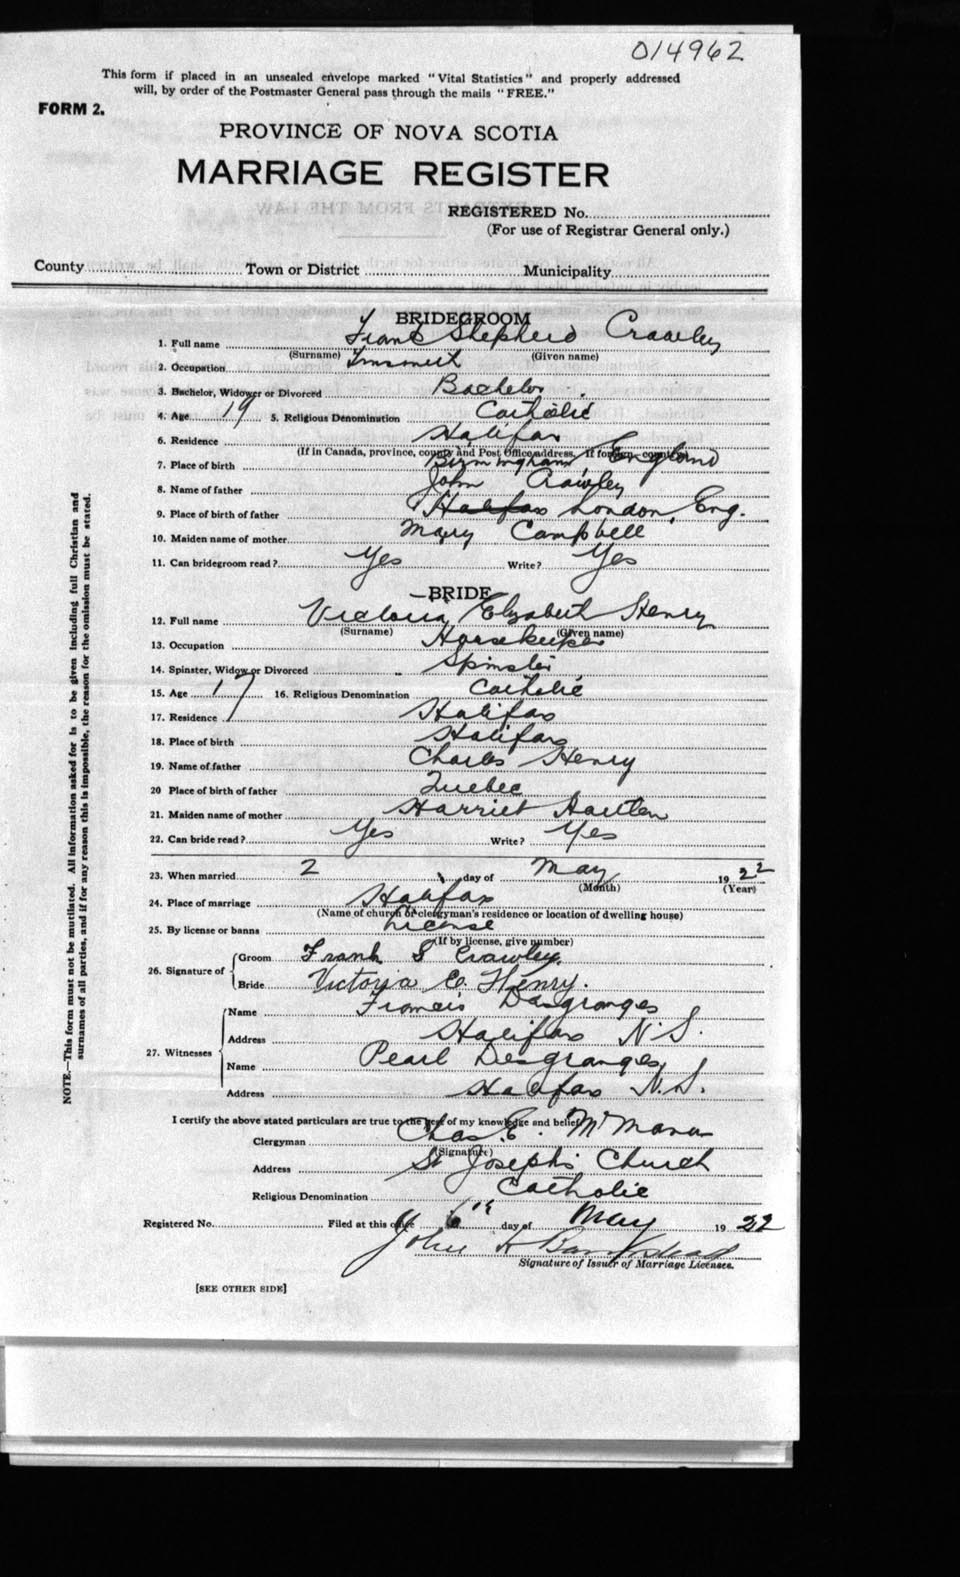 014962
This form if placed in an unsealed envelope marked "Vital Statistics" and properly addressed
will, by order of the Postmaster General pass through the mails "FREE."
FORM 2.
PROVINCE OF NOVA SCOTIA
MARRIAGE REGISTER
REGISTERED No.
(For use of Registrar General only.)
County Town or District Municipality
BRIDEGROOM
1. Full name Frank Shepherd Crawley
(Surname) (Given name)
2. Occupation Tinsmith
3. Bachelor, Widower or Divorced Bachelor
4. Age 19 5. Religious Denomination Catholic
6. Residence Halifax
(If in Canada, province, county and Post Office address. If foreign, country)
7. Place of birth Birmingham, England
8. Name of father John Crawley
9. Place of birth of father Halifax London, Eng.
10. Maiden name of mother Mary Campbell
11. Can bridegroom read? Yes Write? Yes
BRIDE
12. Full name Victoria Elizabeth Henry
(Surname) (Given name)
13. Occupation Housekeeper
14. Spinster, Widow or Divorced Spinster
15. Age 17 16. Religious Denomination Catholic
17. Residence Halifax
18. Place of birth Halifax
19. Name of father Charles Henry
20 Place of birth of father Quebec
21. Maiden name of mother Harriet
22. Can bride read? Yes Write? Yes
23. When married 2 day of May 1922
(Month) (Year)
24. Place of marriage Halifax
(Name of church or clergyman's residence or location of dwelling house)
25. By license or banns License
(If by license, give number)
26. Signature of Groom Frank S Crawley.
Bride Victoria E. Henry.
27. Witnesses Name Francis Desgranges
Address Halifax N.S.
Name Pearl Desgranges
Address Halifax N.S.
I certify the above stated particulars are true to the best of my knowledge and belief.
Clergyman Chas. E. McManus
(Signature)
Address St Joseph's Church
Religious Denomination Catholic
Registered No. Filed at this office 6th day of May 1922
John H
Signature of Issuer of Marriage Licenses.
[SEE OTHER SIDE]
NOTE.—This form must not be mutilated. All information asked for is to be given including full Christian and
surnames of all parties, and if for any reason this is impossible, the reason for the omission must be stated.